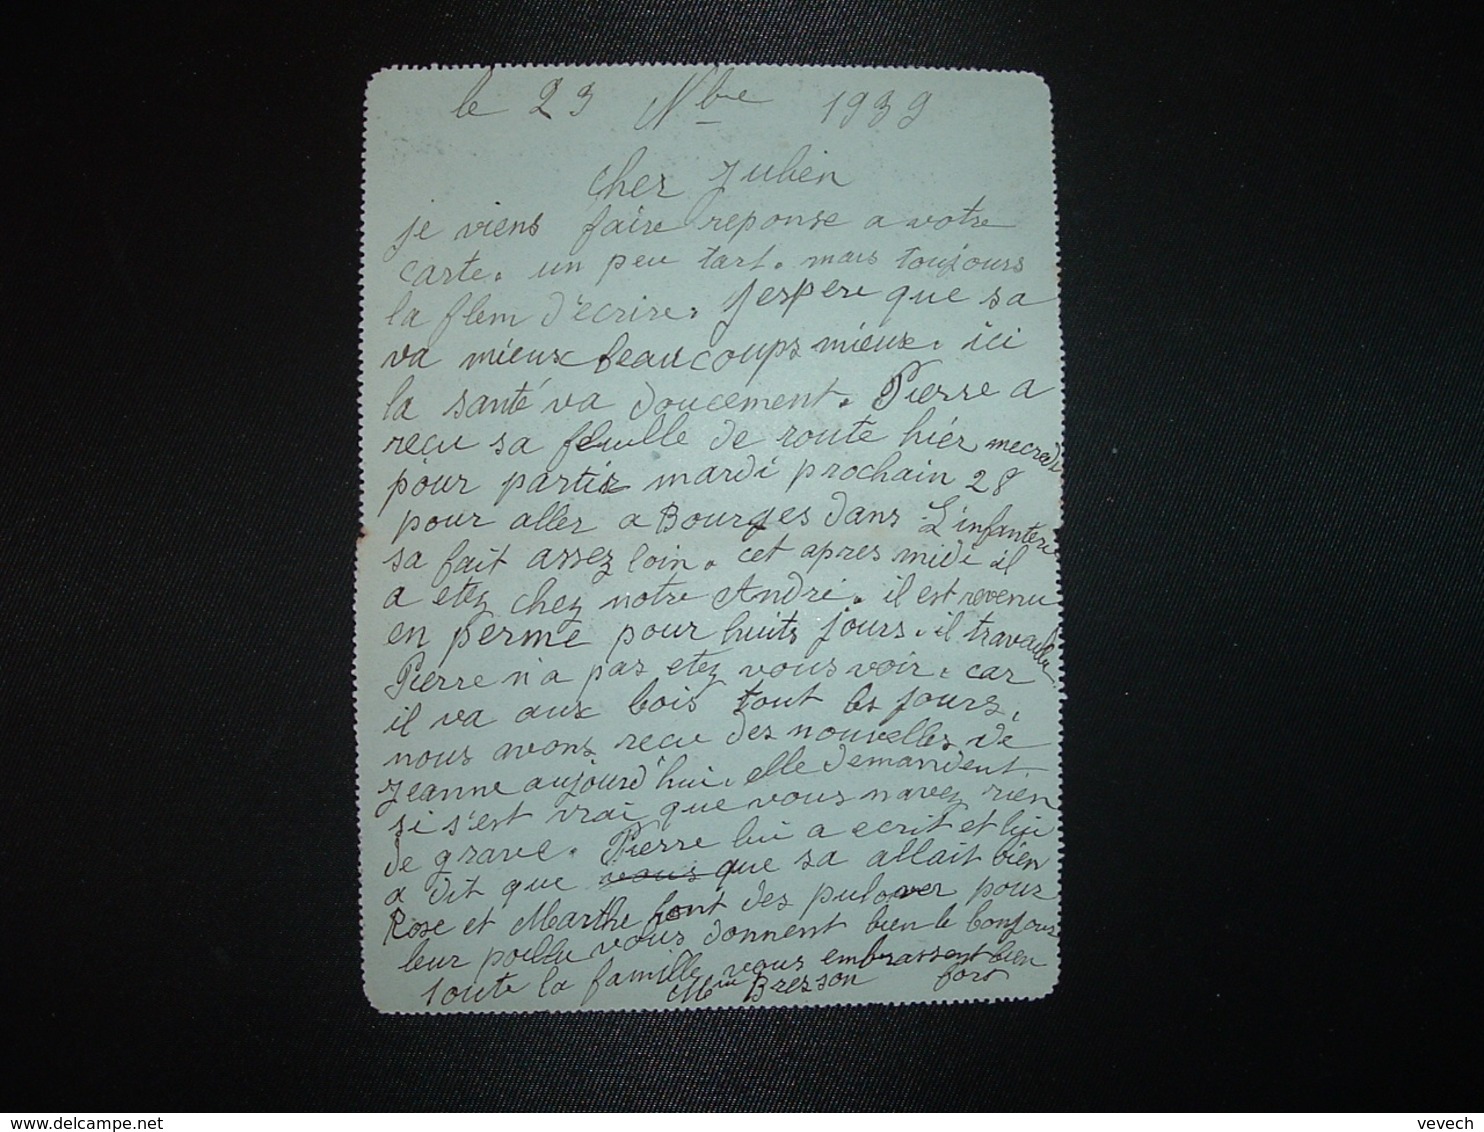 le 23 Nbre 1939
Cher Julien
je viens faire reponse a votre
carte. un peu tart. mais toujours
la flem d'écrire. J'espere que sa
va mieux beaucoups mieux. ici
la santé va doucement. Pierre a
reçu sa feuille de route hiér mecredi
pour partir mardi prochain 28
pour aller a Bourges dans L'infanterie
sa fait assez loin. cet apres midi il
a etez chez notre André. il est revenu
en perme pour huits jours. il travaille
Pierre n'a pas etez vous voir. car
il va aux bois tout les jours.
nous avons reçu des nouvelles de
Jeanne aujourd'hui. elle demandent
si s'est vrai que vous navez rien
de grave. Pierre lui a ecrit et lui
a dit que vous que sa allait bien
Rose et Marthe font des pulover pour
leur poillu vous donnent bien le bonjour
Toute la famille vous embrassent bien
Mme Bresson fors
vevech